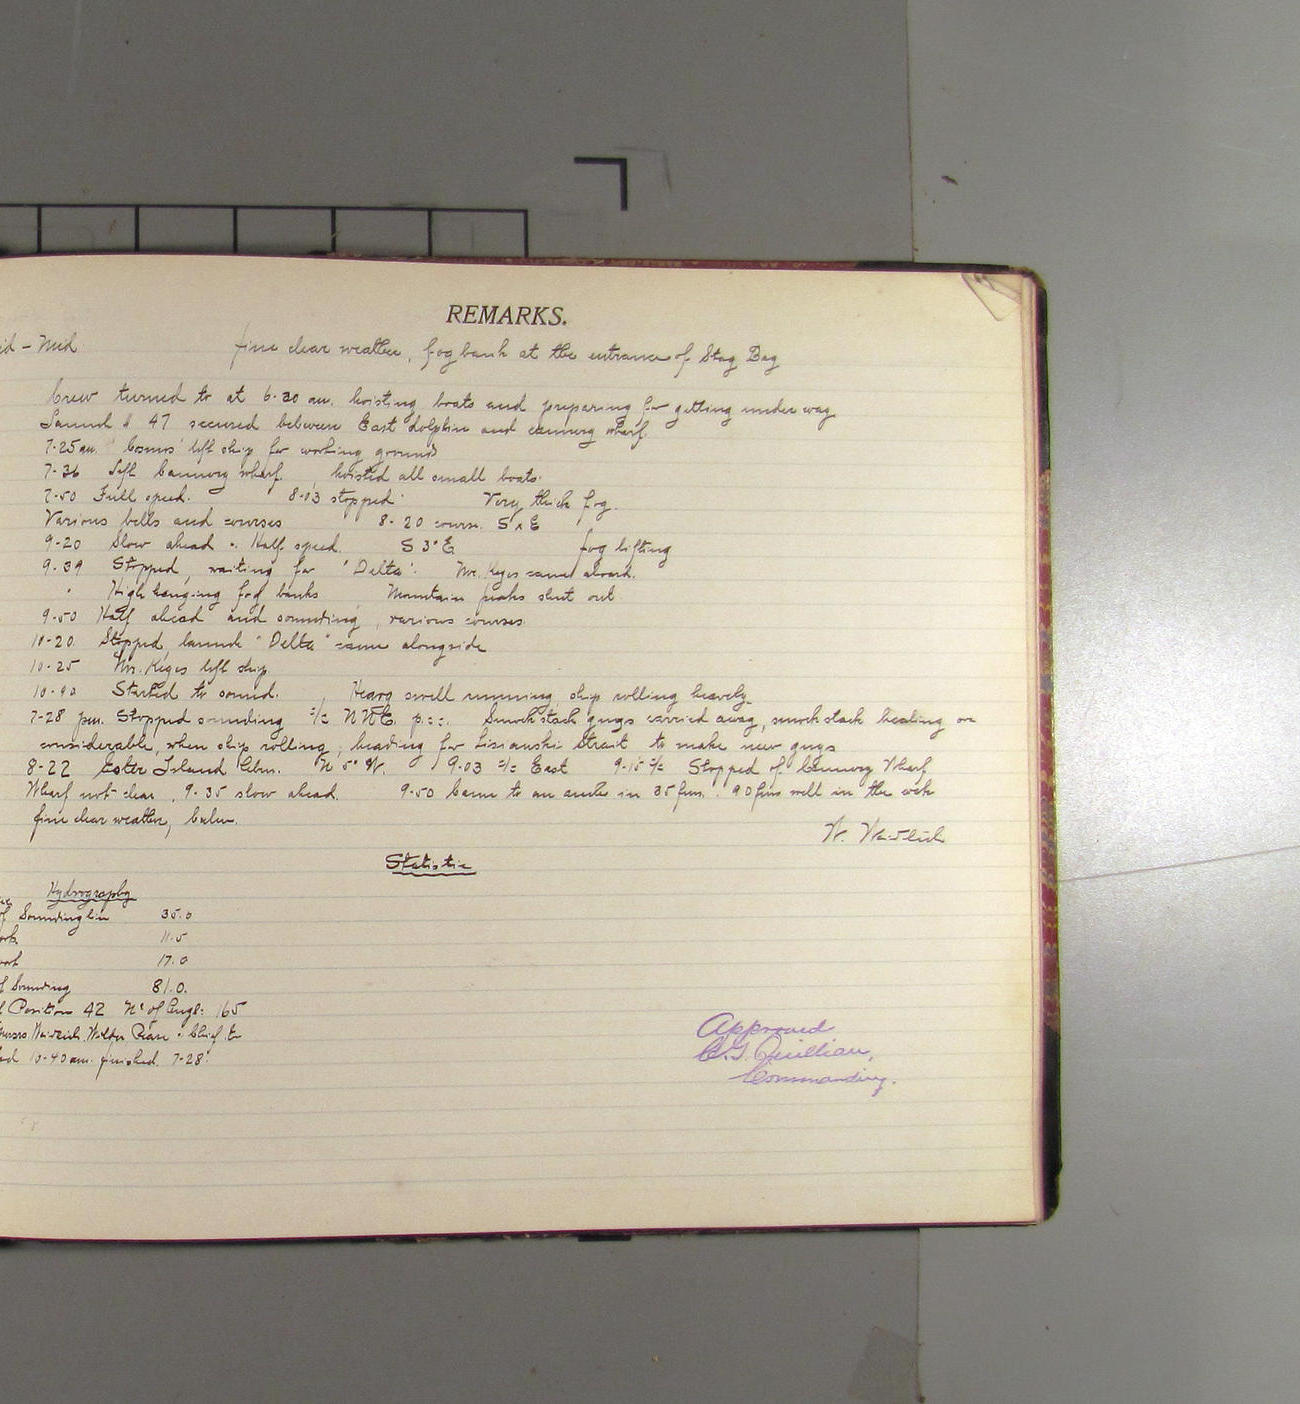 REMARKS.
id - Mid fine clear weather, fog bank at the entrance of Stag Bay
Crew turned to at 6-30 am. hoisting boats and preparing for getting under way
Launch # 47 secured between East dolphin and cannery wharf.
7-25 am. "Cosmos" left ship for working grounds
7-36 Left Cannery wharf. hoisted all small boats.
7-50 Full speed. 8-03 stopped. Very thick fog.
Various bells and courses 8-20 course. S x E
9-20 Slow ahead Half speed. S 3° E fog lifting
9-39 Stopped, waiting for "Delta". Mr. Keyes came aboard.
" High hanging fog banks Mountain peaks shut out
9-50 Half ahead and sounding, various courses
10-20 Stopped, launch "Delta" came alongside
10-25 Mr. Keyes left ship.
10-40 Started to sound. Heavy swell running, ship rolling heavely
7-28 pm. Stopped sounding c/c NNE. p.s.c. Smoke stack guys carried away, smoke stack healing on
considerable, when ship rolling, heading for Lisianski Strait to make new guys
8-22 Ester Island N 5° W. 9-03 c/c East 9-15 c/c Stopped of Cannery Wharf
Wharf not clear, 9-35 slow ahead. 9-50 Came to an anchor in 35 fms. 90 fms well in the
fine clear weather, calm.
W. Weidlich
Statistic
Hydrography
of Sounding lin 35.0
11.5
17.0
of Sounding 81.0.
Position 42 No of Angl: 165
Weidlich.
10-40 am. finished. 7-28.
Approved
C. G. Quillian,
Commanding.